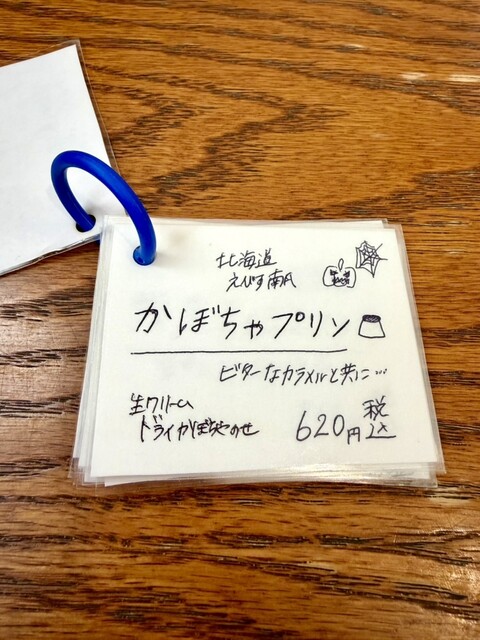 北海道
えびす南瓜
かぼちゃプリン
ビターなカラメルと共に…
生クリーム
ドライかぼちゃのせ
620円税込